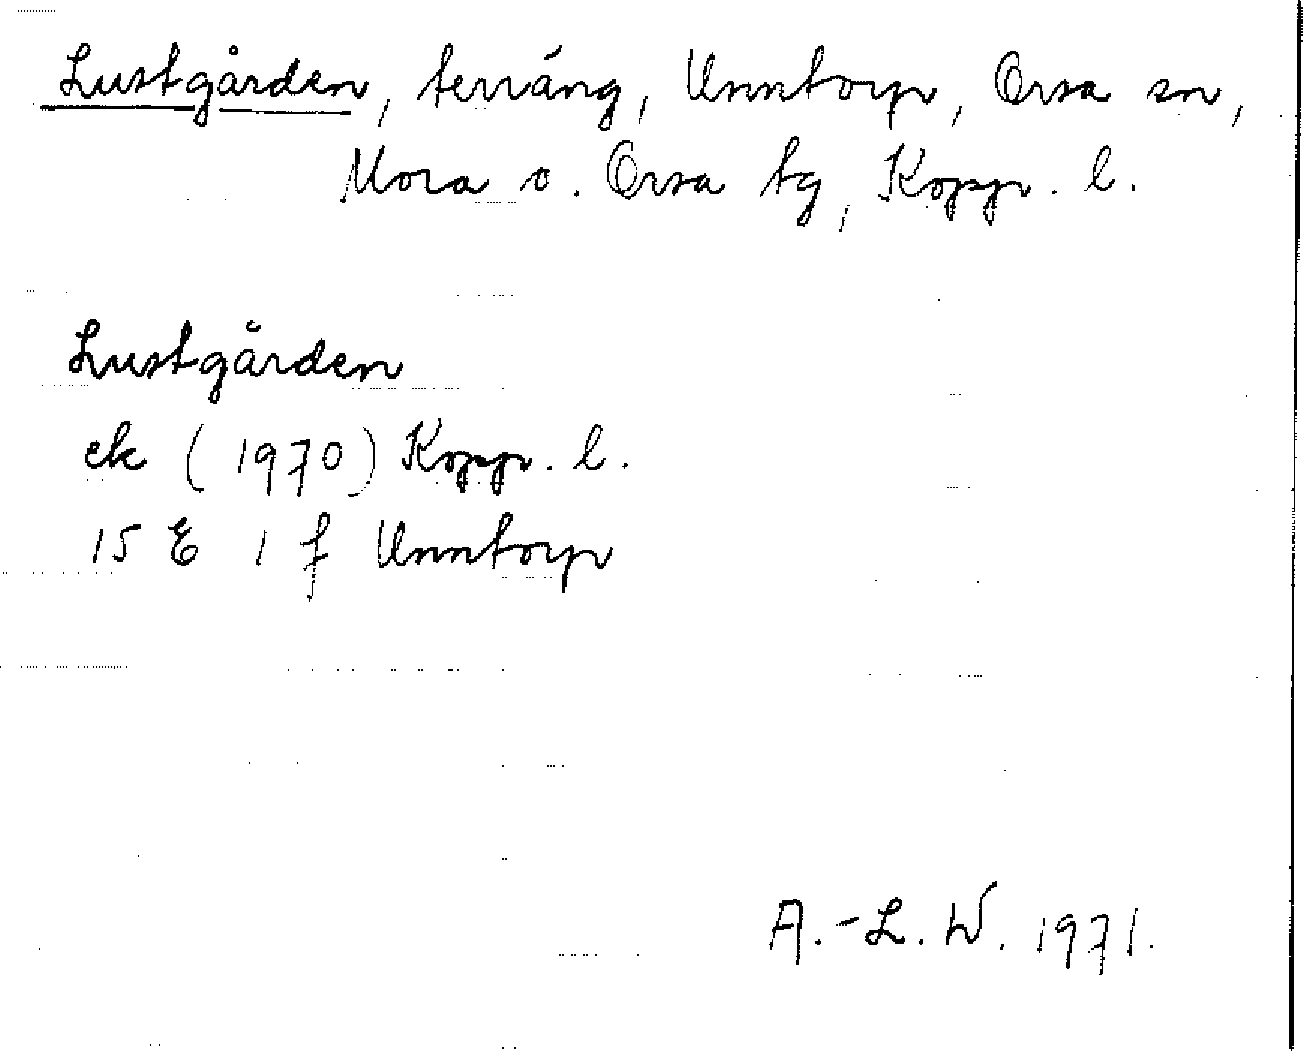 Lustgården, terräng, Unntorp, Orsa sn,
Mora o. Orsa tg, Kopp. l.
Lustgården
ek (1970) Kopp. l.
15 E 1 f Unntorp
A.-L. W. 1971.